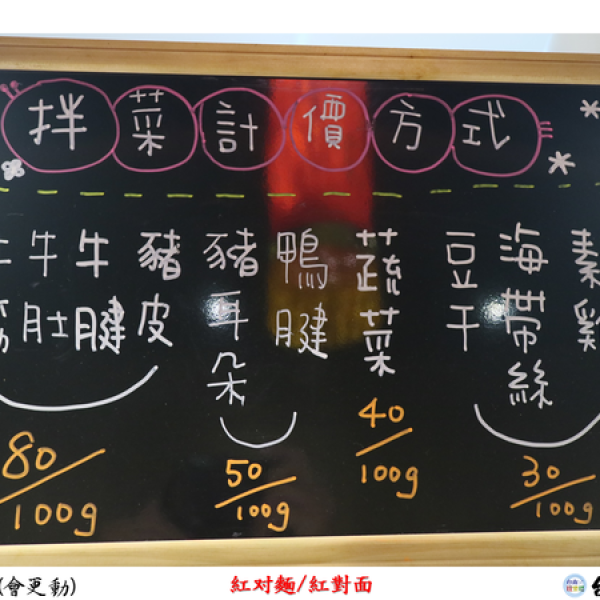 拌菜計價方式
牛肚
牛腱
豬皮
豬耳朵
鴨腱
蔬菜
豆干
海帶絲
素雞
80/100g
50/100g
40/100g
30/100g
(會更動)
紅对麵/紅對面